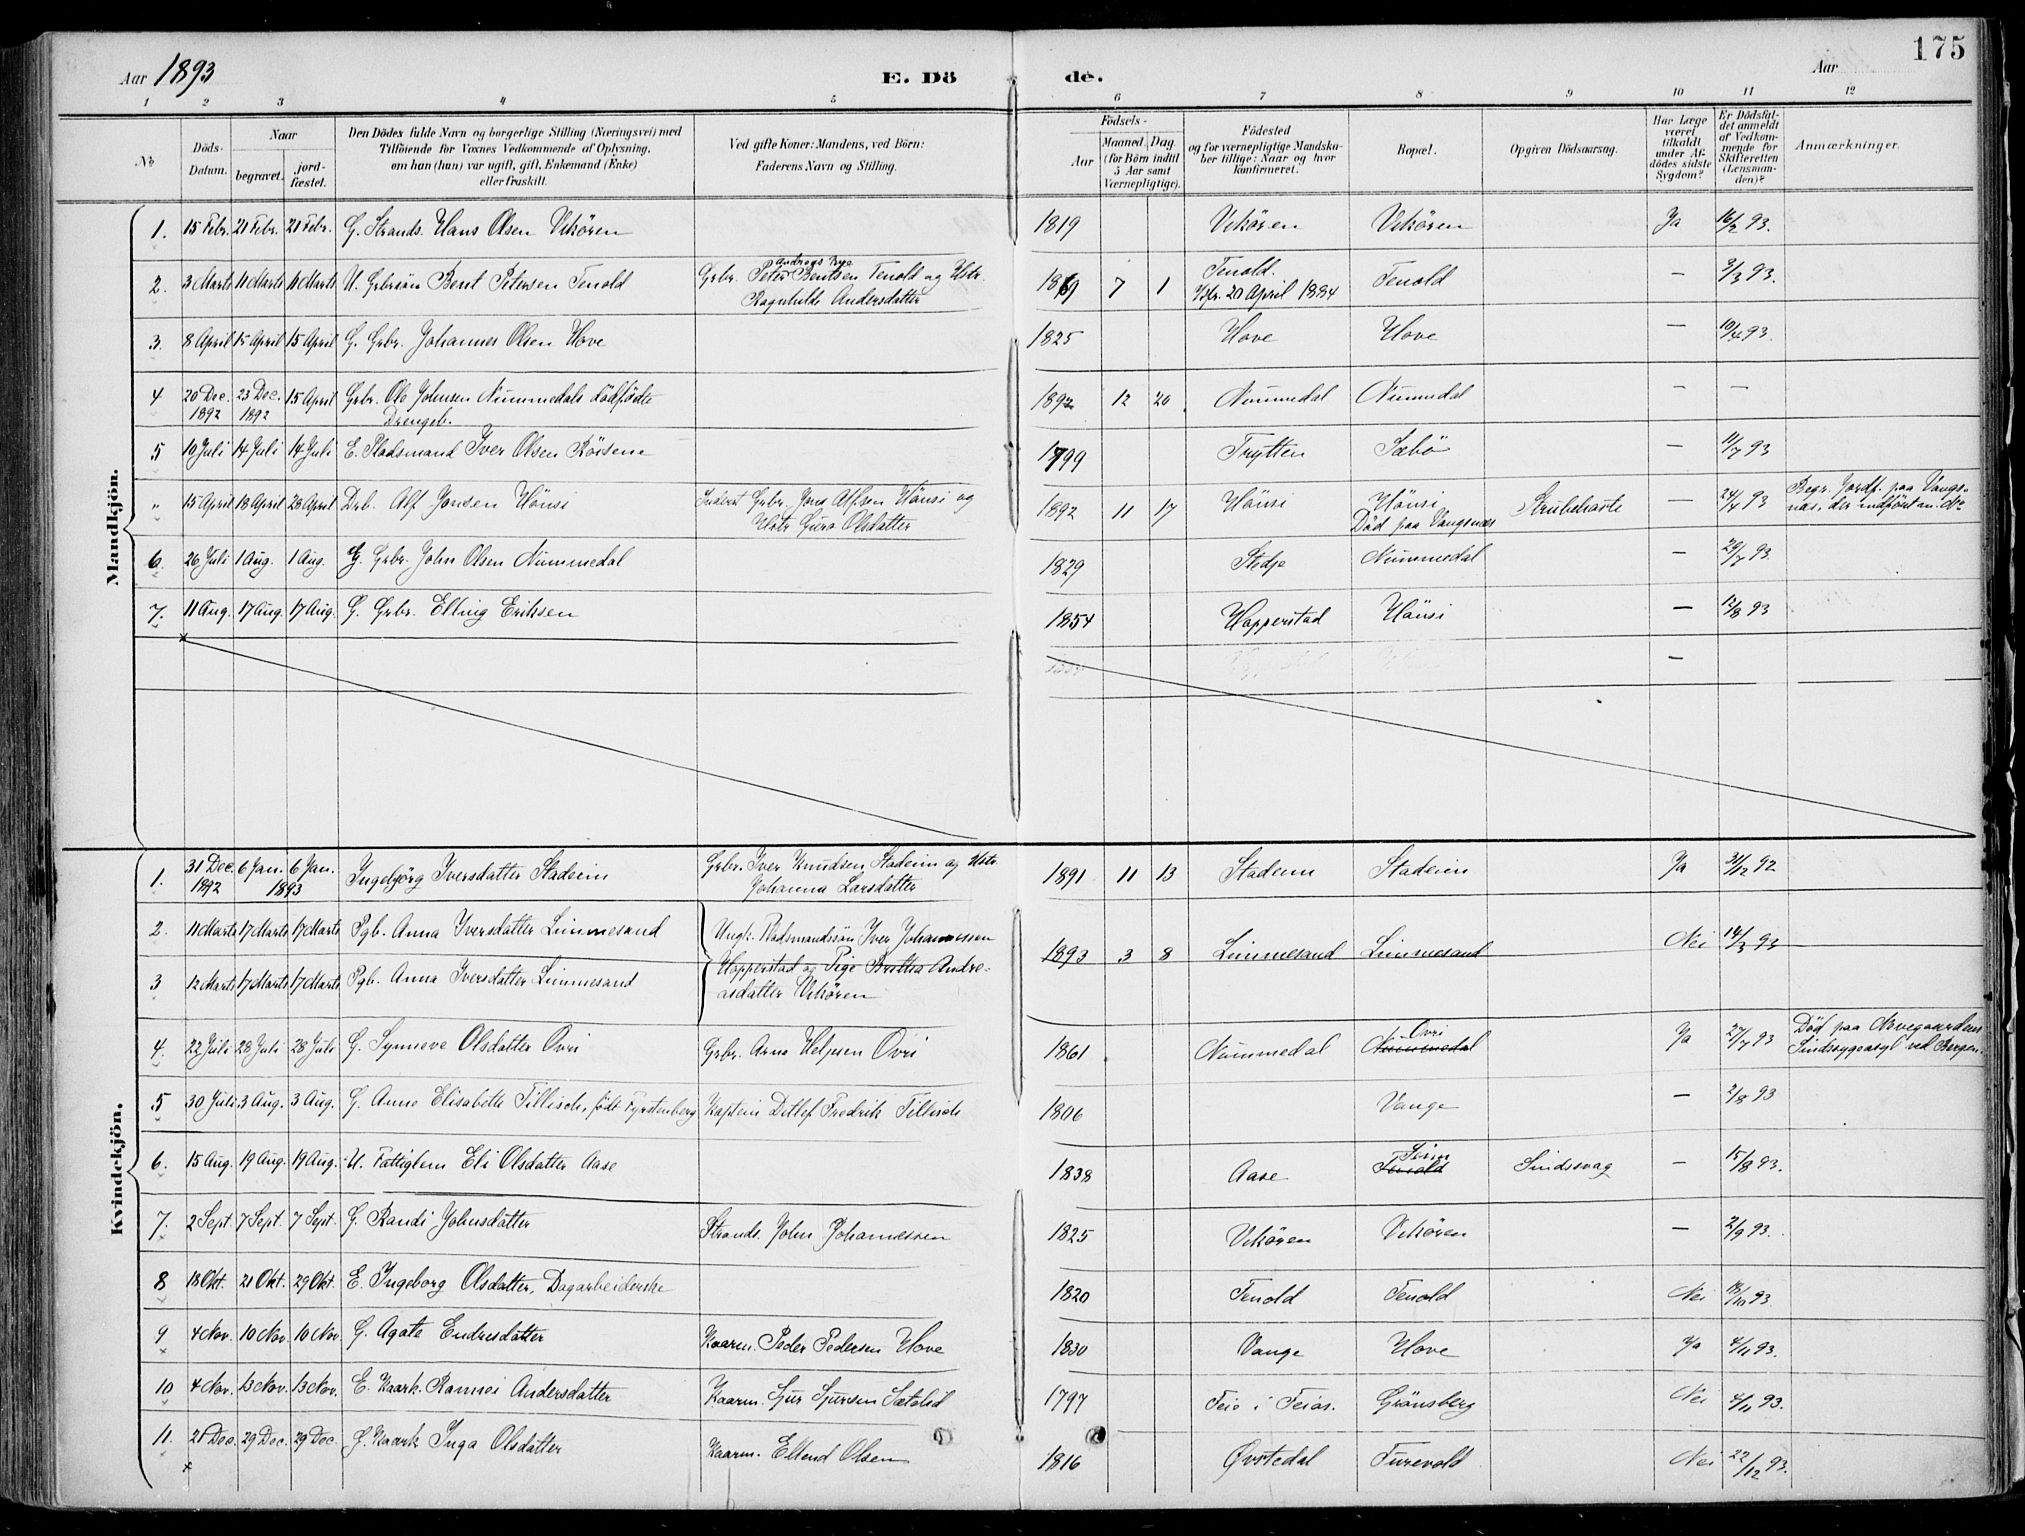 175
Aar 1893 E. Dö de. Aar
1 2 3 4 5 6 7 8 9 10 11 12
No
Döds-Datum.
Naar
begravet.
jord-fæstet.
Den Dödes fulde Navn og borgerlige Stilling (Næringsvei) med
Tilföiende for Voxnes Vedkommende af Oplysning,
om han (hun) var ugift, gift, Enkemand (Enke)
eller fraskilt.
Ved gifte Koner: Mandens, ved Börn:
Faderens Navn og Stilling.
Födsels-
Aar
Maaned. Dag.
(for Börn indtil
5 Aar samt
Værnepligtige).
Födested
og for værnepligtige Mandska-
ber tillige: Naar og hvor
konfirmeret.
Bopæl.
Opgiven Dödsaarsag.
Har Læge
været
tilkaldt
under Af-
dödes sidste
Sygdom?
Er Dödsfal-
det anmeldt
af Vedkom-
mende for
Skifteretten
(Lensman-
den)?
Anmærkninger.
Mandkjön.
1. 15 Febr. 21 Febr. 21 Febr. G. Strands. Hans Olsen Vikören 1819 Vikören Vikören Ja 16/2 93.
2. 3 Marts 11 Marts 11 Marts U. Grbrsön Bent Petersen Tenold Grbr. Peter Andreas Bentsen Tenold og Hstr. 1869 7 1 Tenold. Tenold — 3/3 93.
Ragnhilde Andersdatter 20 April 1884
3. 8 April 15 April 15 April G. Grbr. Johannes Olsen Hove 1825 Hove Hove — 10/4 93.
4 20 Dec. 23 Dec. 15 April Grbr. Ole Johnsen Nummedals dödfödte 1892 12 20 Nummedal Nummedal — —
1892 1892 Drengeb.
5 10 Juli 14 Juli 14 Juli E. Pladsmand Iver Olsen Röisene 1799 Trytten Sæbö — 11/7 93
" 15 April 18 April 23 April Drb. Alf Jonsen Hönsi Grbr. Jons Alfsen Hönsi og 1892 11 17 Hönsi Hönsi Strubehoste — 24/4 93 Begr. Jordf. paa Vangs-
Hstr Guro Olsdatter Död paa Vangsnæs næs, der indfört m. No
6. 26 Juli 1 Aug. 1 Aug. G. Grbr. John Olsen Nummedal 1829 Stedje Nummedal — 29/7 93
7. 11 Aug. 17 Aug. 17 Aug. G. Grbr. Elling Eriksen 1854 Hopperstad Hönsi — 12/8 93
—
Kvindekjön.
1. 31 Dec. 6 Jan. 6 Jan. Ingebjörg Iversdatter Stadeim Grbr. Iver Knudsen Stadeim og Hstr. 1891 11 13 Stadeim Stadeim Ja 31/12 92
1892 1893 Johanna Larsdatter
2. 11 Marts 17 Marts 17 Marts Pgb. Anna Iversdatter Limmesand Ungk. Pladsmandssön Iver Johannessen 1893 3 8 Limmesand Limmesand Nei 14/3 93
3 12 Marts 17 Marts 17 Marts Pgb. Anna Iversdatter Limmesand Hopperstad og Pige Britha Andre-
asdatter Vikören
4. 22 Juli 28 Juli 28 Juli G. Synneve Olsdatter Ovri Grbr. Arne Helgesen Ovri 1861 Nummedal Nummedal Ovri Ja 27/7 93 Död paa Neevegaardens
Sindssygeasyl ved Bergen.
5 30 Juli 3 Aug. 3 Aug. G. Anne Elisabeth Tillisch, födt Fyrstenberg Kaptein Ditlef Fredrik Tillisch 1806 Vange — 2/8 93
6. 15 Aug. 19 Aug. 19 Aug. U. Fattiglem Eli Olsdatter Aase 1838 Aase Tenold Sindssvag — 15/8 93.
7. 2 Sept. 7 Sept. 7 Sept. G. Randi Johnsdatter Strands. John Johannessen 1825 Vikören Vikören — 2/9 93.
8 18 Okt. 21 Okt. 29 Okt. E. Ingeborg Olsdatter, Dagarbeiderske 1820 Tenold Tenold Nei 18/10 93
9 4 Nov. 10 Nov. 10 Nov. G. Agate Endresdatter Kaarm. Peder Pedersen Hove 1830 Vange Hove Ja 4/11 93.
10 4 Nov. 13 Nov. 13 Nov. E. Kaark. Rannei Andersdatter Kaarm. Sjur Sjursen Sætalid 1797 Feio i Feios. Grönsberg Nei 4/11 93.
11. 21 Dec. 29 Dec. 29 Dec. G. Kaark Inga Olsdatter Kaarm. Ellend Olsen 1816 Øvstedal Turevold Nei 22/12 93.